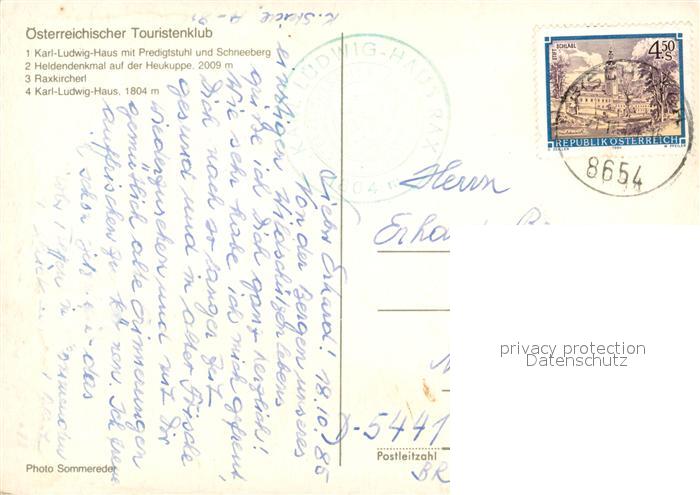 Österreichischer Touristenklub
1 Karl-Ludwig-Haus mit Predigtstuhl und Schneeberg
2 Heldendenkmal auf der Heukuppe, 2009 m
3 Raxkircherl
4 Karl-Ludwig-Haus, 1804 m
Lieber Erhard! 18.10.85
Von den Bergen unseres
einstigen Wildschützenlebens
grüße ich Dich ganz herzlich!
Wie sehr habe ich mich gefreut,
Dich nach so langer Zeit
gesund und in alter Frische
wiederzusehen und mit Dir
gemütlich alte Erinnerungen
auffrischen zu können. Ich freue
schon jetzt das
LUDWIG-HAUS RAX
1804 m
STIFT SCHLÄGL
4.50 S
REPUBLIK ÖSTERREICH
8654
Herrn
D-5441
Postleitzahl
BR
privacy protection
Datenschutz
Photo Sommereder